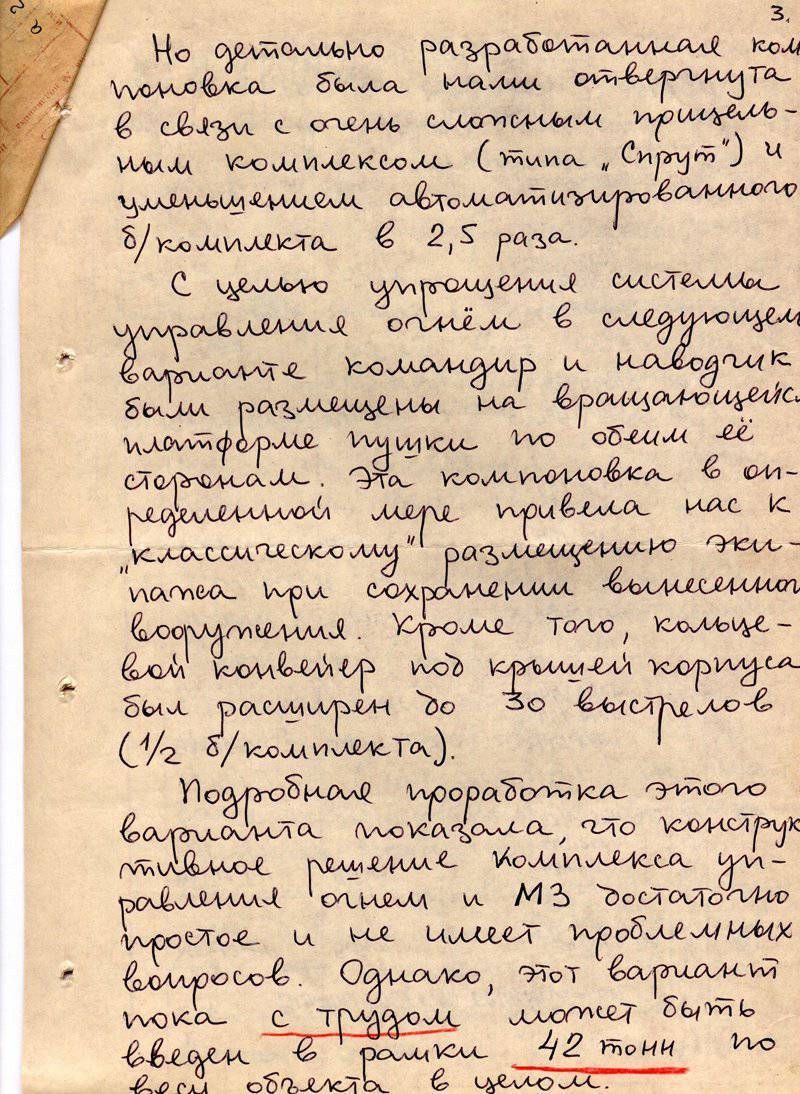 3.
Но детально разработанная ком
поновка была нами отвергнута
в связи с очень сложным прицель-
ным комплексом (типа „Спрут") и
уменьшением автоматизированного
б/комплекта в 2,5 раза.
С целью упрощения системы
управления огнём в следующем
варианте командир и наводчик
были размещены на вращающейс
платформе пушки по обеим её
сторонам. Эта компоновка в оп-
ределенной мере привела нас к
„классическому" размещению эки-
пажа при сохранении вынесенног
вооружения. Кроме того, кольце-
вой конвейер под крышей корпуса
был расширен до 30 выстрелов
(1/2 б/комплекта).
Подробная проработка этого
варианта показала, что конструк
тивное решение комплекса уп-
равления огнем и МЗ достаточно
простое и не имеет проблемных
вопросов. Однако, этот вариант
пока с трудом может быть
введен в рамки 42 тонн по
весу объекта в целом.